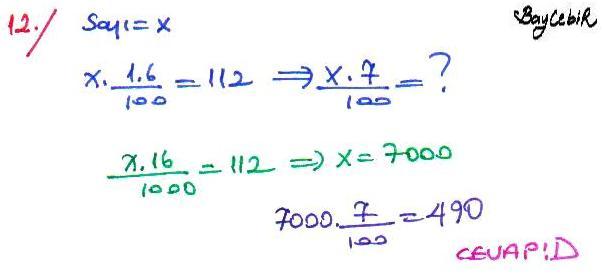 12./ Sayı = x
BAYCEBİR
x. 1.6/100 = 112 ⟹ x.7/100 = ?
x.16/1000 = 112 ⟹ x = 7000
7000. 7/100 = 490
CEVAP: D